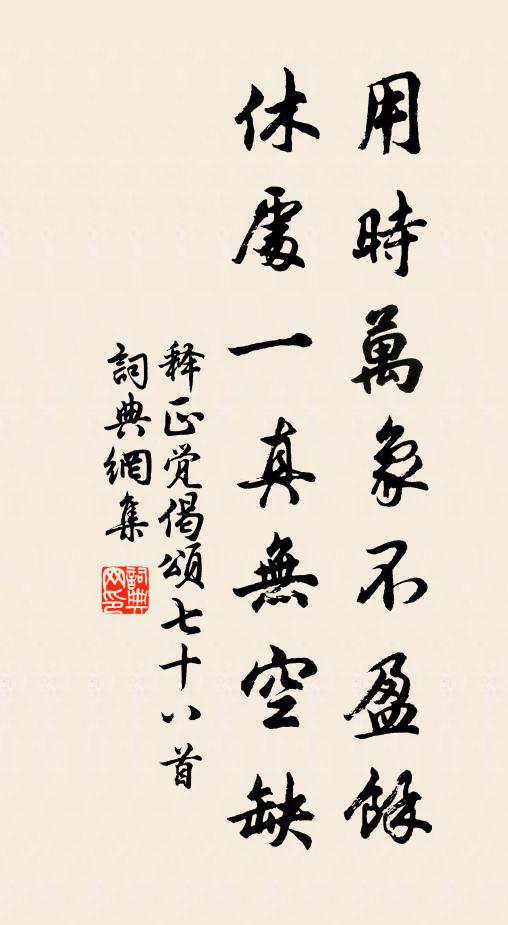 用時萬象不盈餘
休處一真無空缺
释正觉偈頌七十八首
詞典網集
詞典
网印